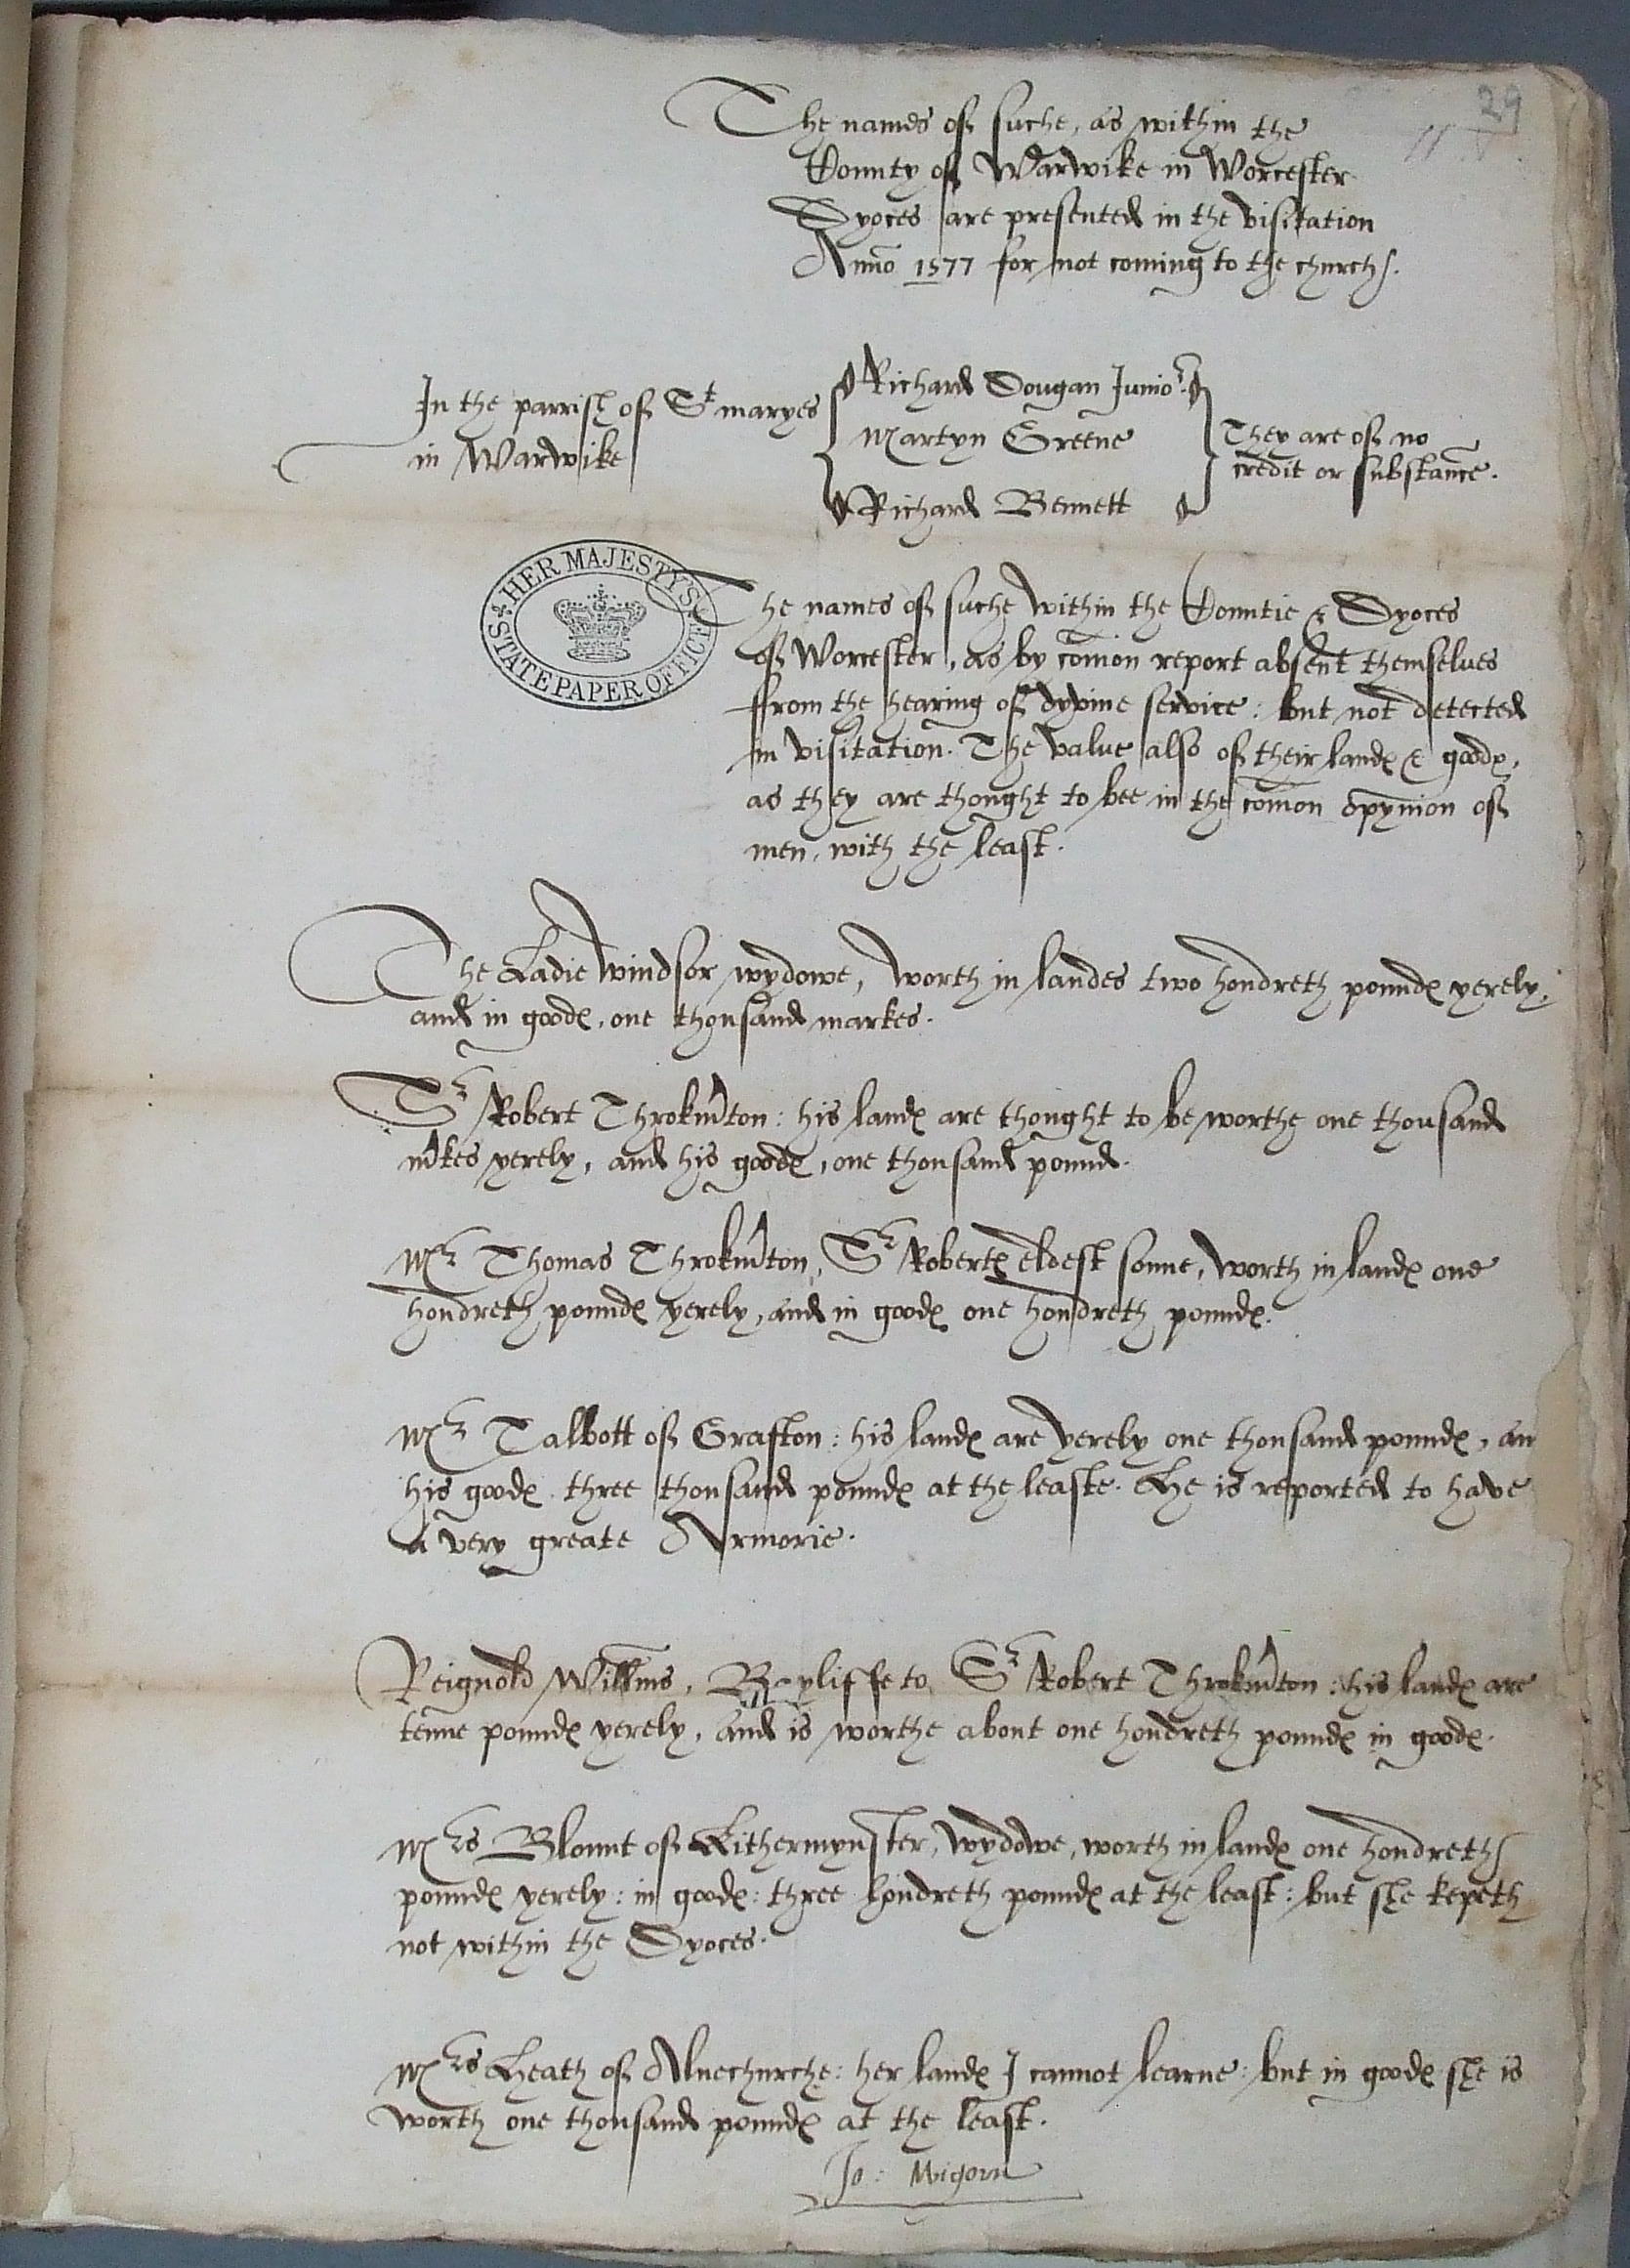 29
The names of suche, as within the
County of Warwike in Worcester
Dyoces are presented in the visitation
Anno 1577 for not coming to the church.
In the parrish of St maryes
in Warwike
Richard Dougan Junior.
Martyn Greene
Richard Bennett
They are of no
credit or substance.
HER MAJESTY'S
STATE PAPER OFFICE
The names of suche within the Countie & Dyoces
of Worcester, as by comon report absent themselves
from the hearing of dyvine service: but not detected
in visitation. The value also of their landes & goodes,
as they are thought to bee in the comon opynion of
men, with the least.
The Ladie Windsor wydowe, worth in landes two hondreth poundes yerely,
and in goodes, one thousand markes.
Sr Robert Throkmton: his landes are thought to be worthe one thousand
mkes yerely, and his goodes, one thousand pound.
Mr Thomas Throkmton, Sr Robertes eldest sonne, worth in landes one
hondreth poundes yerely, and in goodes one hondreth poundes.
Mr Talbott of Grafton: his landes are yerely one thousand poundes, an
his goodes three thousand poundes at the leaste. He is reported to have
a very greate Armorie.
Reignold Willms, Bayliffe to Sr Robert Throkmton: his landes are
tenne poundes yerely, and is worthe about one hondreth poundes in goodes.
Mrs Blount of Kithermynster, wydowe, worth in landes one hondreth
poundes yerely: in goodes: three hondreth poundes at the least: but she kepeth
not within the Dyoces.
Mrs Heath of Alnechurche: her landes I cannot learne: but in goodes she is
worth one thousand poundes at the least.
Jo: Wigorn